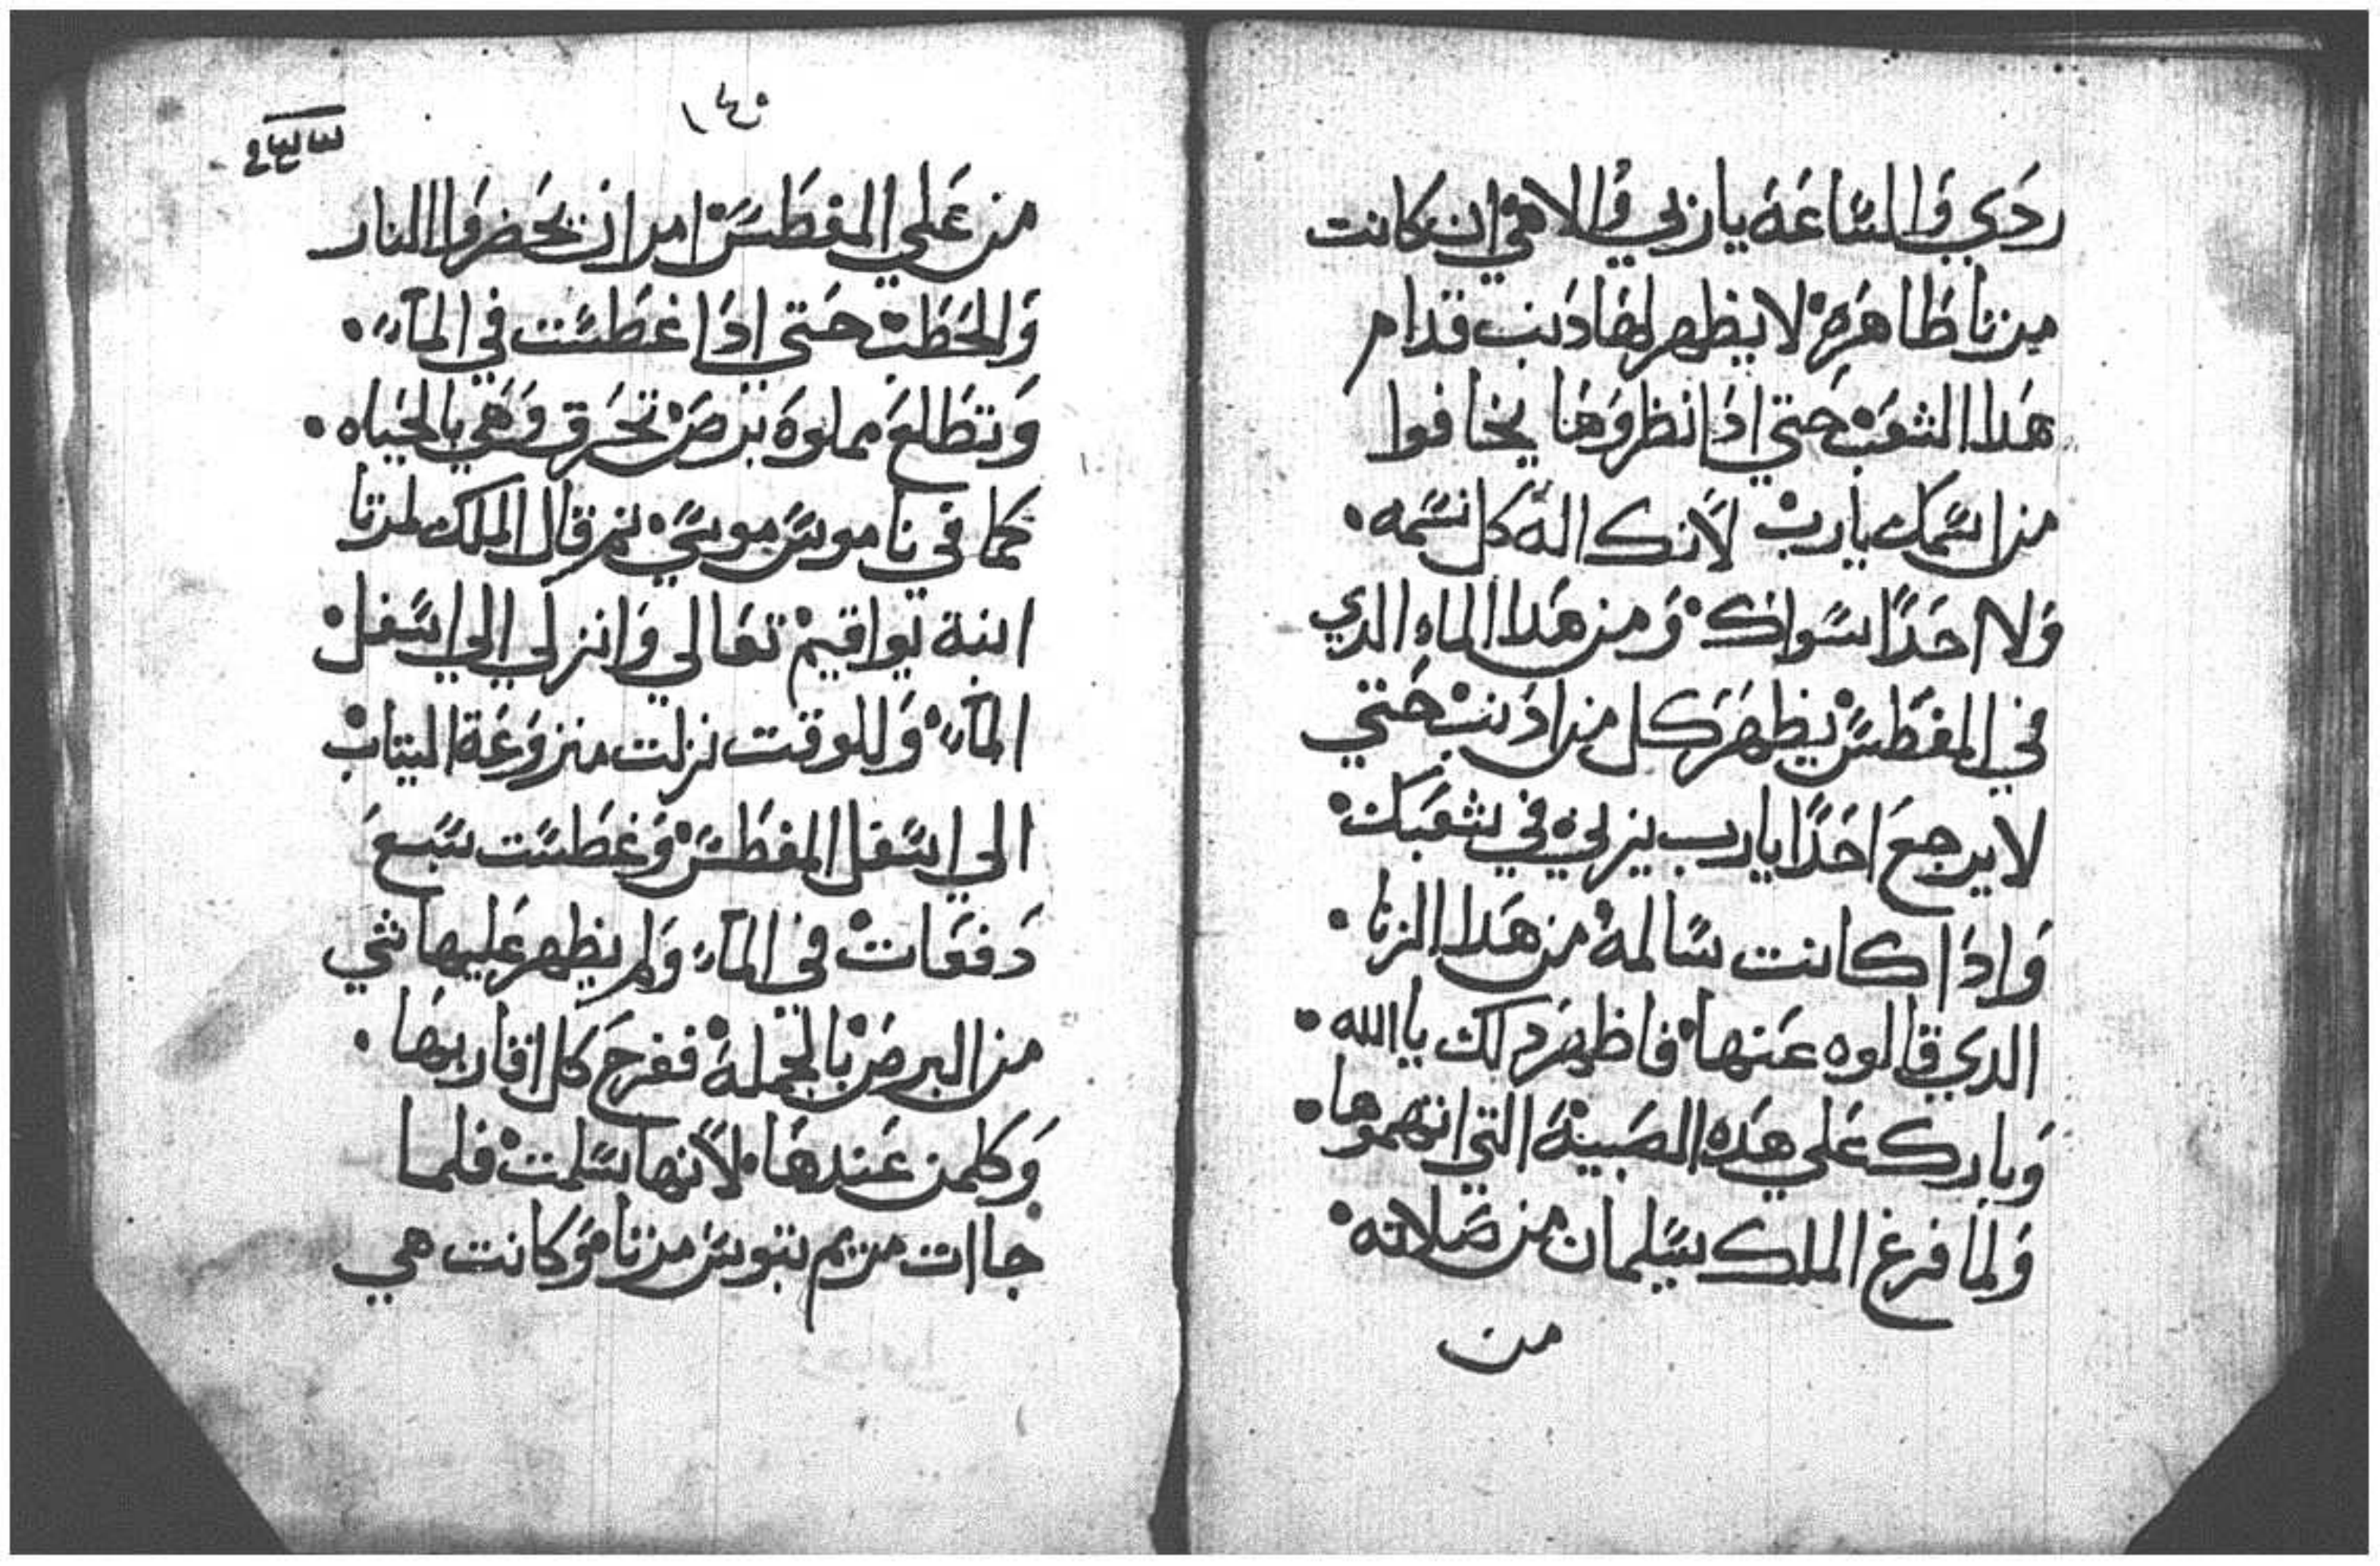 ردي والساعة يا ربي والاهي ان كانت
مرتا طاهره لا يظهر لها دنب قدام
هدا الشعب حتي ادا نظروها يخافوا
من اسمك يا رب لانك اله كل نسمه
ولا احدًا سواك ومن هدا الماء الدي
في المغطس يظهر كل من ادنب حتي
لا يرجع احدًا يا رب يزني في شعبك
وادا كانت سالمة من هدا الزنا
الدي قالوه عنها فاظهر لك يا الله
وبارك علي هده الصبية التي اتهموها
ولما فرغ الملك سليمان من صلاته
من
١٤٠
من علي المغطس امر ان يحضروا النار
والحطب حتي ادا غطست في الماء
وتطلع مملوة برص تحرق وهي بالحياه
كما في ناموس موسي ثم قال الملك لمرتا
ابنة يواقيم تعالي وانزلي الي اسفل
الماء وللوقت نزلت منزوعة التياب
الي اسفل المغطس وغطست سبع
دفعات في الماء ولم يظهر عليها شي
من البرص بالجملة ففرح كل اقاربها
وكلمن عندها لانها سلمت فلما
جاات مريم تبوس مرتا وكانت هي